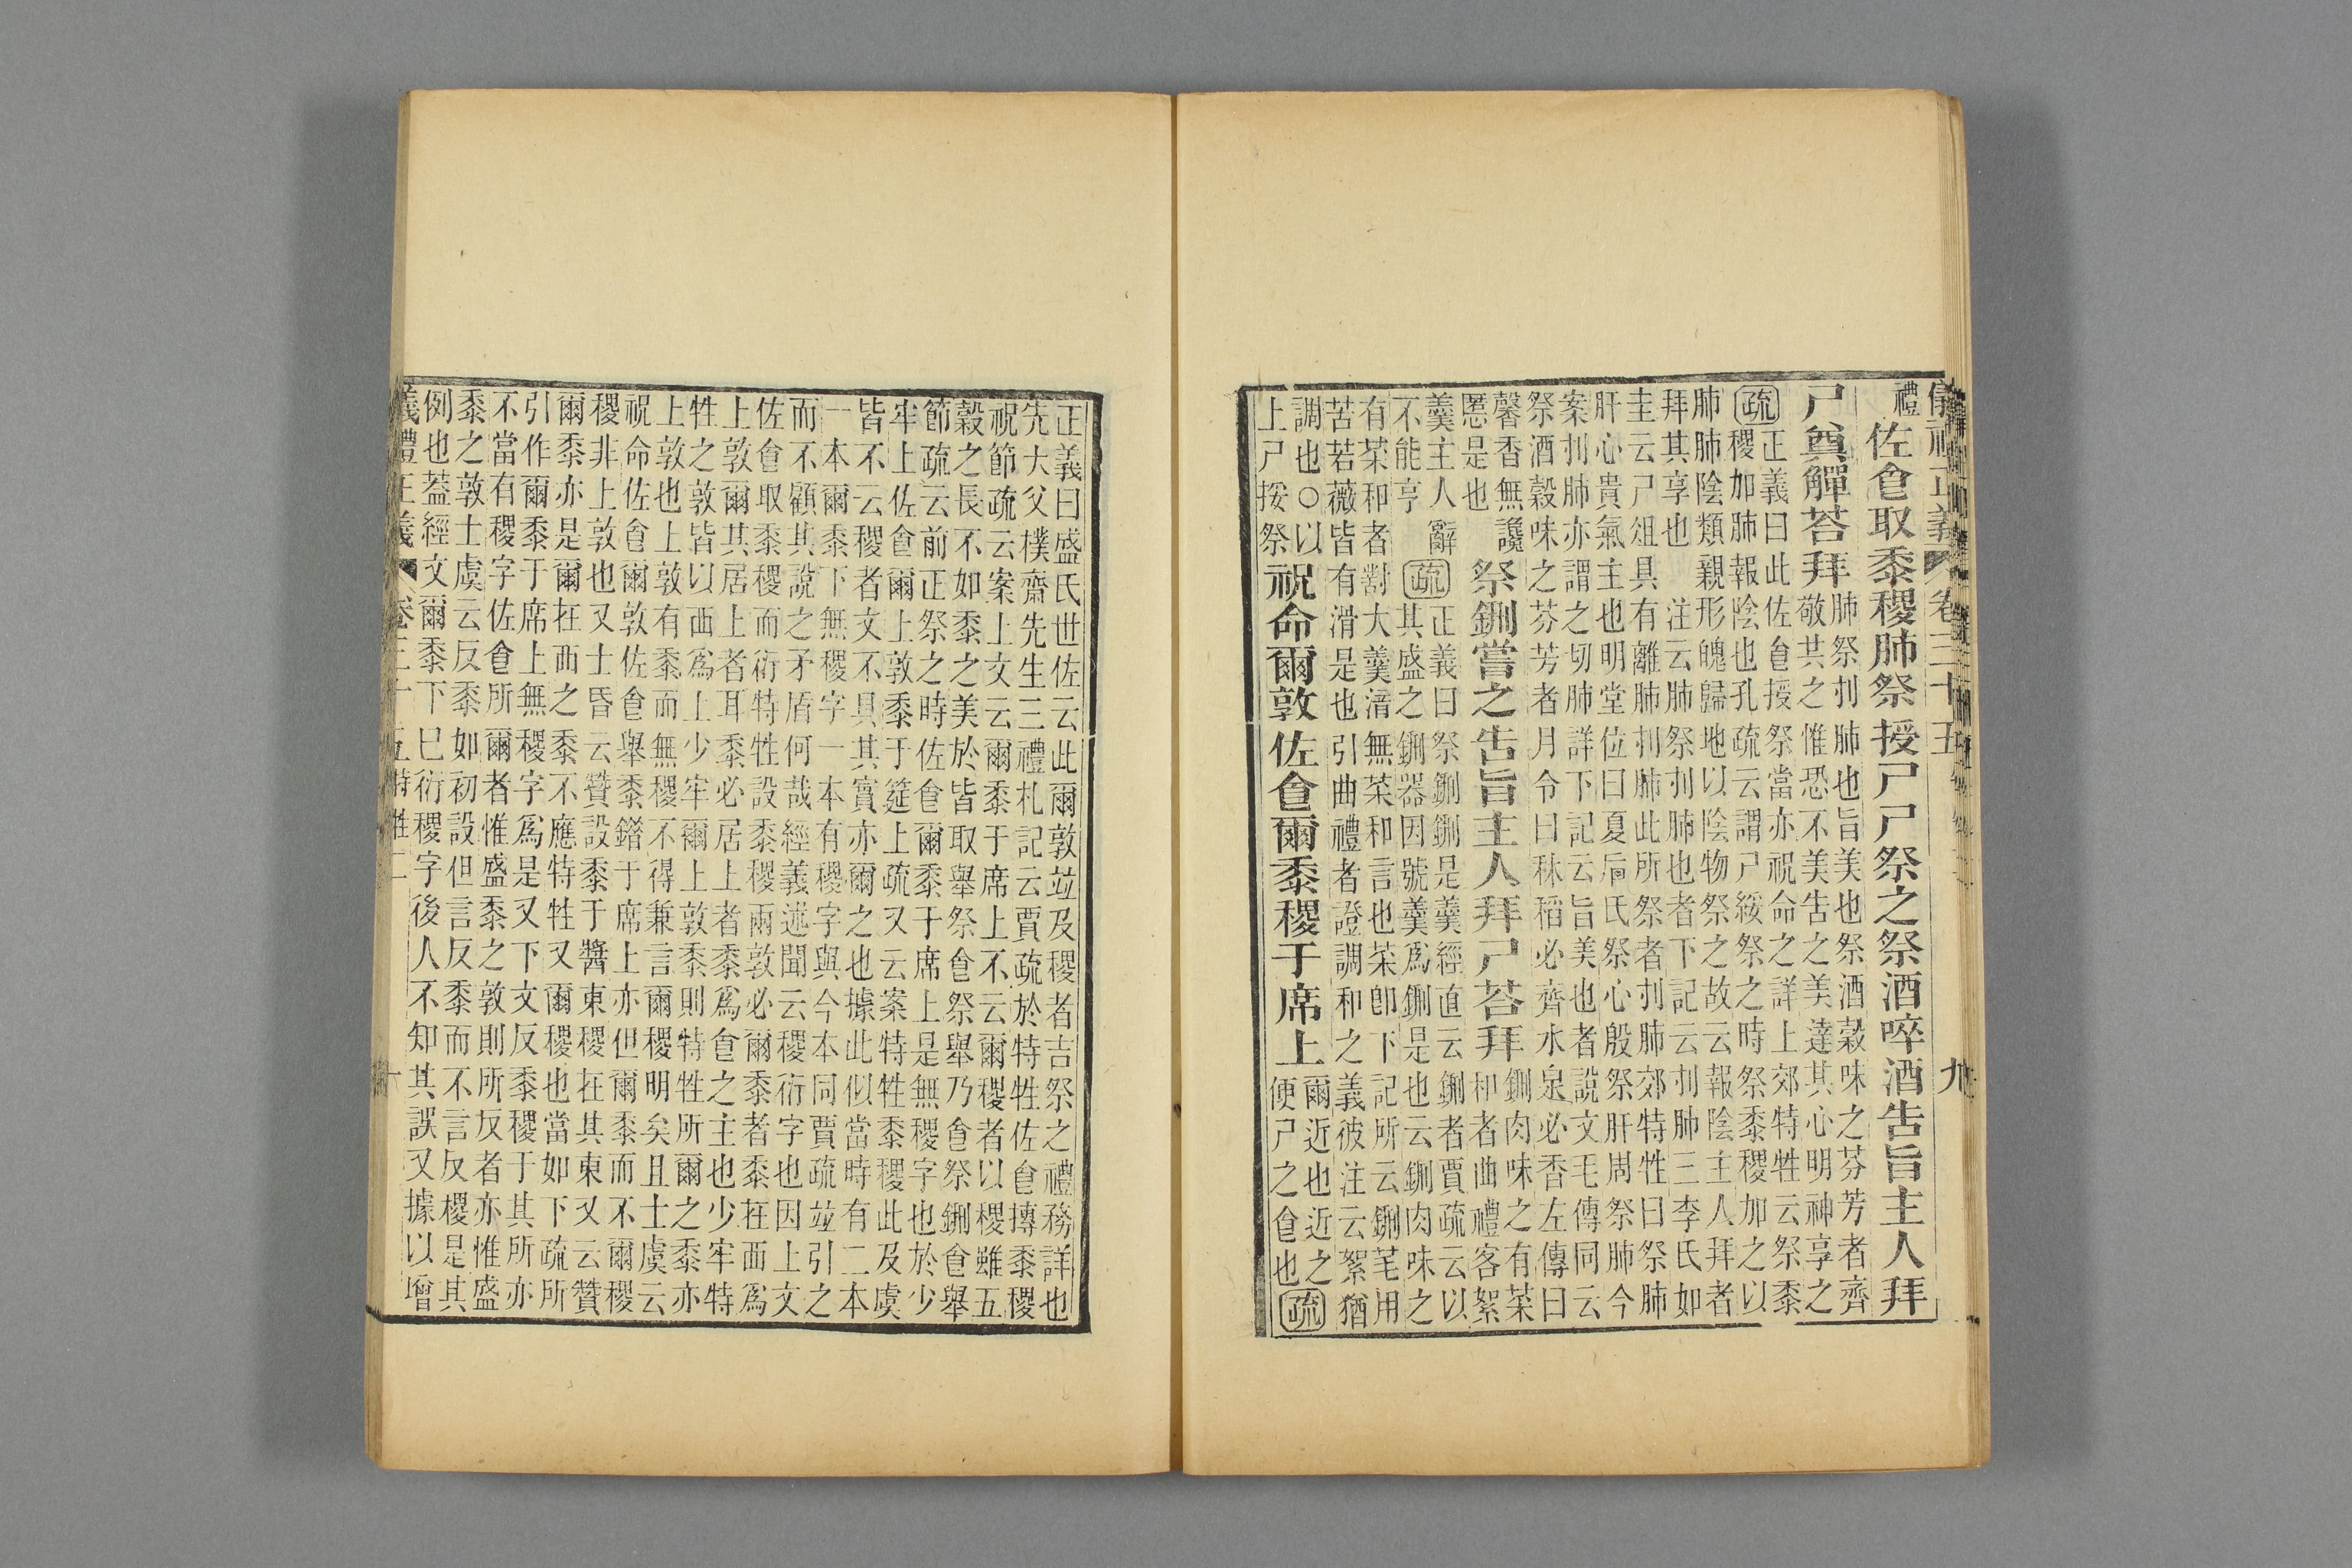 儀禮正義 卷三十五 九
禮
佐食取黍稷肺祭授尸尸祭之祭酒啐酒告旨主人拜
尸奠觶荅拜
肺祭刌肺也旨美也祭酒穀味之芬芳者齊
敬共之惟恐不美告之美達其心明神享之
疏
正義曰此佐食授祭當亦祝命之詳上郊特牲云祭黍
稷加肺報陰也孔疏云謂尸綏祭之時祭黍稷加之以
肺肺陰類親形魄歸地以陰物祭之故云報陰主人拜者
拜其享也　注云肺祭刌肺也者下記云刌肺三李氏如
圭云尸俎具有離肺刌肺此所祭者刌肺郊特牲曰祭肺
肝心貴氣主也明堂位曰夏后氏祭心殷祭肝周祭肺今
案刌肺亦謂之切肺詳下記云旨美也者說文毛傳同云
祭酒穀味之芬芳者月令曰秫稻必齊水泉必香左傳曰
馨香無讒
慝是也
祭鉶嘗之告旨主人拜尸荅拜
鉶肉味之有菜
和者曲禮客絮
羹主人辭
不能亨
疏
正義曰祭鉶鉶是羹經直云鉶者賈疏云以
其盛之鉶器因號羹爲鉶是也云鉶肉味之
有菜和者對大羹湆無菜和言也菜卽下記所云鉶芼用
苦若薇皆有滑是也引曲禮者證調和之義彼注云絮猶
調也○以
上尸挼祭
祝命爾敦佐食爾黍稷于席上
爾近也近之
便尸之食也
疏
正義曰盛氏世佐云此爾敦竝及稷者吉祭之禮務詳也
先大父樸齋先生三禮札記云賈疏於特牲佐食摶黍稷
祝節疏云案上文云爾黍于席上不云爾稷者以稷雖五
穀之長不如黍之美於皆取舉祭食祭舉乃食祭鉶食舉
節疏云前正祭之時佐食爾黍于席上是無稷字也於少
牢上佐食爾上敦黍于筵上疏又云案特牲黍稷此及虞
皆不云稷者文不具其實亦爾之也據此似當時有二本
一本爾黍下無稷字一本有稷字與今本同賈疏竝引之
而不顧其說之矛盾何哉經義述聞云稷衍字也因上文
佐食取黍稷而衍特牲設黍稷兩敦必爾黍者黍在西爲
上敦爾其居上者耳黍必居上者黍爲食之主也少牢特
牲之敦皆以西爲上少牢爾上敦黍則特牲所爾之黍亦
上敦也上敦有黍而無稷不得兼言爾稷明矣且士虞云
祝命佐食爾敦佐食舉黍錯于席上亦但爾黍而不爾稷
稷非上敦也又士昏云贊設黍于醬東稷在其東又云贊
爾黍亦是爾在西之黍不應特牲又爾稷也當如下疏所
引作爾黍于席上無稷字爲是又下文反黍稷于其所亦
不當有稷字佐食所爾者惟盛黍之敦則所反者亦惟盛
黍之敦士虞云反黍如初設但言反黍而不言反稷是其
例也葢經文爾黍下已衍稷字後人不知其誤又據以增
義禮正義 卷三十五特牲一